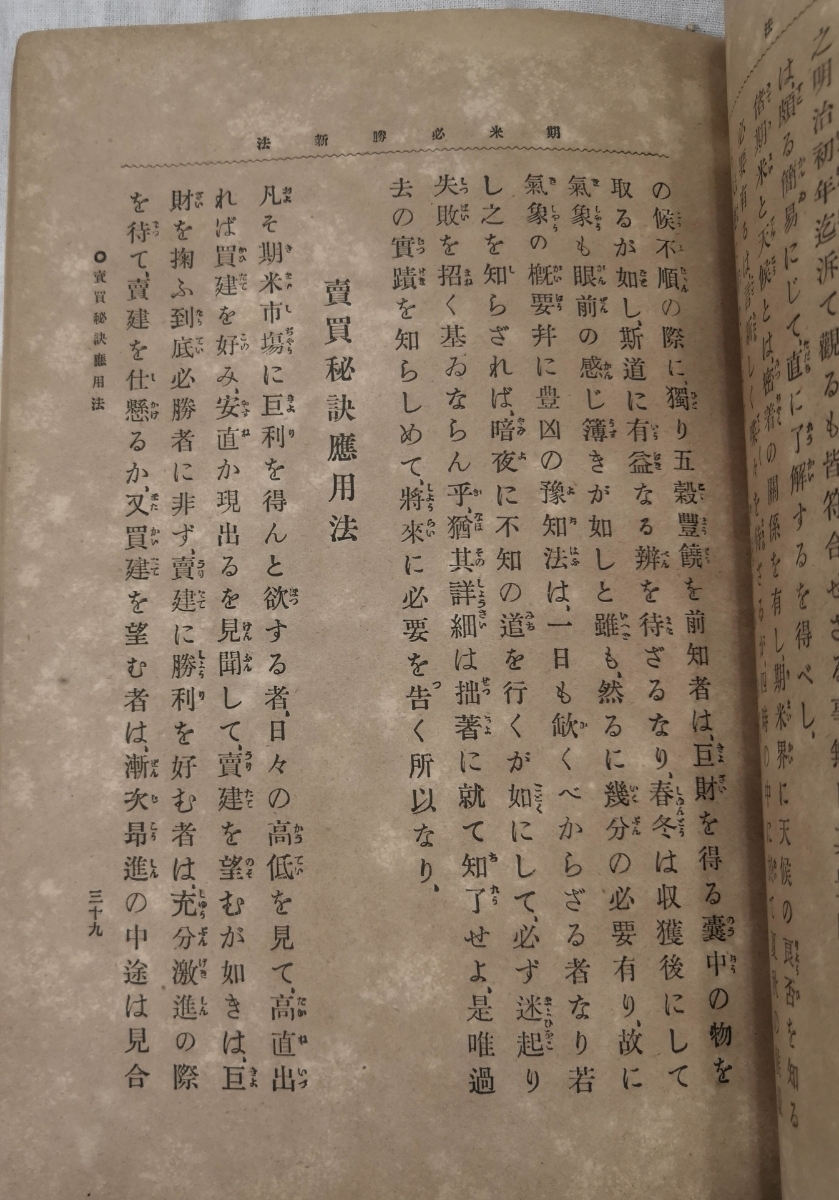 之明治初年迄泝て觀るも皆符合せざる事無
は、頗る簡易にして、直に了解するを得べし、
偖期米と天候とは、密着の關係を有し、期米界に天候の良否を知る
期米必勝新法
の候不順の際に、獨り五穀豐饒を前知者は、巨財を得る囊中の物を
取るが如し、斯道に有益なる辨を待ざるなり、春冬は収獲後にして
氣象も眼前の感じ簿きが如しと雖も、然るに幾分の必要有り、故に
氣象の槪要幷に豊凶の豫知法は、一日も缺くべからざる者なり若
し之を知らざれば、暗夜に不知の道を行くが如にして、必ず迷起り
失敗を招く基ゐならん乎、猶其詳細は拙著に就て知了せよ、是唯過
去の實蹟を知らしめて、將來に必要を告く所以なり、
賣買秘訣應用法
凡そ期米市塲に巨利を得んと欲する者、日々の高低を見て、高直出
れば買建を好み、安直か現出るを見聞して、賣建を望むが如きは、巨
財を掬ふ到底必勝者に非ず、賣建に勝利を好む者は、充分激進の際
を待て、賣建を仕懸るか、又買建を望む者は、漸次昻進の中途は見合
○賣買秘訣應用法
三十九